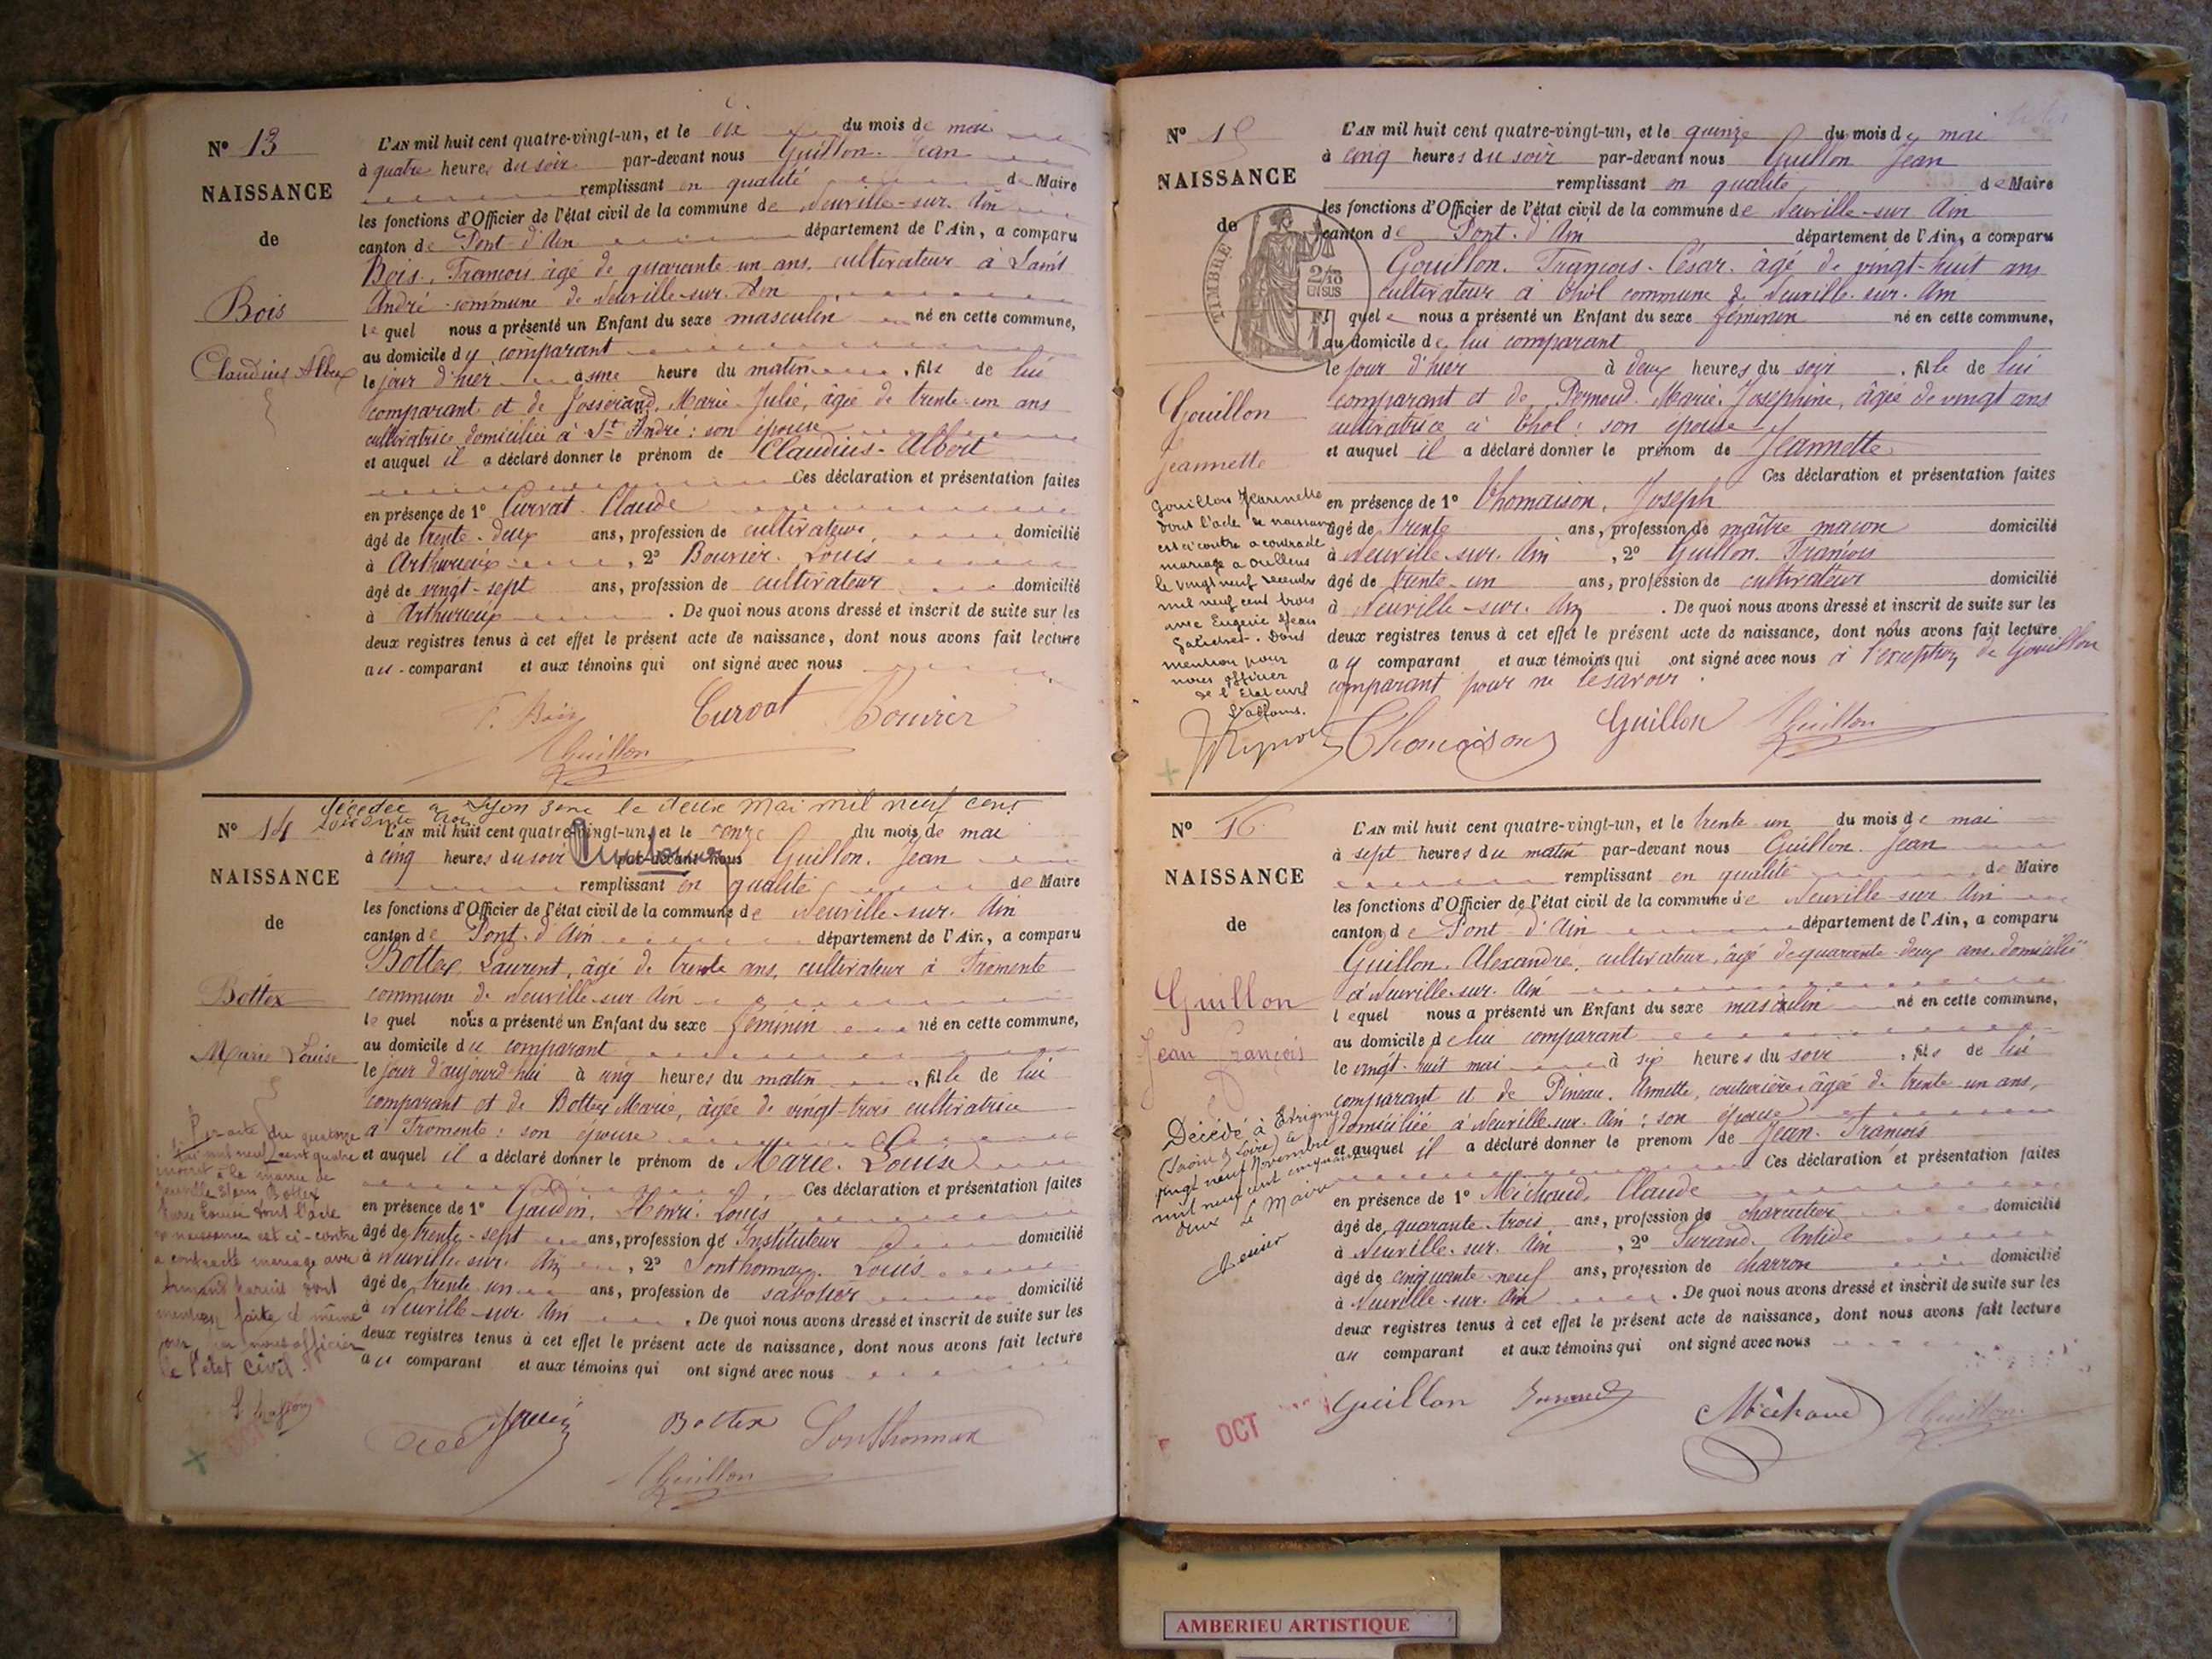 N° 13
NAISSANCE
de
Bois
Claudius Albert
L'AN mil huit cent quatre-vingt-un, et le dix du mois de mai
à quatre heures du soir par-devant nous Guillon Jean
remplissant en qualité de Maire
les fonctions d'Officier de l'état civil de la commune de Neuville-sur-Ain
canton de Pont-d'Ain département de l'Ain, a comparu
Bois, François âgé de quarante-un ans, cultivateur à Saint
André commune de Neuville-sur-Ain
lequel nous a présenté un Enfant du sexe masculin né en cette commune,
au domicile du comparant
le jour d'hier à une heure du matin, fils de lui
comparant et de Josserand, Marie-Julie, âgée de trente-un ans
cultivatrice domiciliée à St André : son épouse
et auquel il a déclaré donner le prénom de Claudius-Albert
Ces déclaration et présentation faites
en présence de 1° Curvat Claude
âgé de trente-deux ans, profession de cultivateur domicilié
à Arthurieux, 2° Bouvier Louis
âgé de vingt-sept ans, profession de cultivateur domicilié
à Arthurieux. De quoi nous avons dressé et inscrit de suite sur les
deux registres tenus à cet effet le présent acte de naissance, dont nous avons fait lecture
au comparant et aux témoins qui ont signé avec nous
F. Bois Curvat Bouvier
Guillon
décédée à Lyon 3eme le deux mai mil neuf cent
soixante
N° 14
NAISSANCE
de
Bottex
Marie Louise
L'AN mil huit cent quatre-vingt-un, et le onze du mois de mai
à cinq heures du soir par-devant nous Guillon, Jean
remplissant en qualité de Maire
les fonctions d'Officier de l'état civil de la commune de Neuville-sur-Ain
canton de Pont-d'Ain département de l'Ain, a comparu
Bottex, Laurent, âgé de trente ans, cultivateur à Fromente
commune de Neuville-sur-Ain
lequel nous a présenté un Enfant du sexe féminin né en cette commune,
au domicile du comparant
le jour d'aujourd'hui à cinq heures du matin, fille de lui
comparant et de Bottex Marie, âgée de vingt-trois cultivatrice
à Fromente : son épouse
et auquel il a déclaré donner le prénom de Marie-Louise
Ces déclaration et présentation faites
en présence de 1° Gaudin, Henri-Louis
âgé de trente-sept ans, profession de Instituteur domicilié
à Neuville-sur-Ain, 2° Sonthonnax Louis
âgé de trente-un ans, profession de sabotier domicilié
à Neuville-sur-Ain. De quoi nous avons dressé et inscrit de suite sur les
deux registres tenus à cet effet le présent acte de naissance, dont nous avons fait lecture
au comparant et aux témoins qui ont signé avec nous
Par acte du quatorze
mai mil neuf cent quatre
inscrit à la mairie de
Neuville s/ Ain, Bottex
Marie Louise dont l'acte
de naissance est ci-contre
a contracté mariage avec
Armand dont
mention faite le même
jour par nous officier
de l'état civil.
Bottex Sonthonnax
Guillon
N° 15
NAISSANCE
de
TIMBRE
2/10
EN SUS
Gouillon
Jeannette
L'AN mil huit cent quatre-vingt-un, et le quinze du mois de mai
à cinq heures du soir par-devant nous Guillon Jean
remplissant en qualité de Maire
les fonctions d'Officier de l'état civil de la commune de Neuville-sur-Ain
canton de Pont-d'Ain département de l'Ain, a comparu
Gouillon, François-César, âgé de vingt-huit ans
cultivateur à Thol commune de Neuville-sur-Ain
lequel nous a présenté un Enfant du sexe féminin né en cette commune,
au domicile de lui comparant
le jour d'hier à deux heures du soir, fille de lui
comparant et de Pernoud Marie-Josephine, âgée de vingt ans
cultivatrice à Thol : son épouse
et auquel il a déclaré donner le prénom de Jeannette
Ces déclaration et présentation faites
en présence de 1° Thomaison, Joseph
âgé de trente ans, profession de maître maçon domicilié
à Neuville-sur-Ain, 2° Guillon François
âgé de trente-un ans, profession de cultivateur domicilié
à Neuville-sur-Ain. De quoi nous avons dressé et inscrit de suite sur les
deux registres tenus à cet effet le présent acte de naissance, dont nous avons fait lecture
au comparant et aux témoins qui ont signé avec nous à l'exception de Gouillon
comparant pour ne le savoir.
Gouillon Jeannette
dont l'acte de naissance
est ci contre a contracté
mariage à Oullins
le vingt neuf décembre
mil neuf cent trois
avec Eugène Jean
. Dont
mention par
nous officier
de l'Etat civil
Thomaison Guillon Guillon
N° 16
NAISSANCE
de
Guillon
Jean François
L'AN mil huit cent quatre-vingt-un, et le trente-un du mois de mai
à sept heures du matin par-devant nous Guillon Jean
remplissant en qualité de Maire
les fonctions d'Officier de l'état civil de la commune de Neuville-sur-Ain
canton de Pont-d'Ain département de l'Ain, a comparu
Guillon, Alexandre, cultivateur, âgé de quarante-deux ans domicilié
à Neuville-sur-Ain
lequel nous a présenté un Enfant du sexe masculin né en cette commune,
au domicile de lui comparant
le vingt-huit mai à six heures du soir, fils de lui
comparant et de Pineau Annette, couturière âgée de trente-un ans,
domiciliée à Neuville-sur-Ain : son épouse
et auquel il a déclaré donner le prénom de Jean-François
Ces déclaration et présentation faites
en présence de 1° Michaud, Claude
âgé de quarante-trois ans, profession de charcutier domicilié
à Neuville-sur-Ain, 2° Durand Antide
âgé de cinquante-neuf ans, profession de charron domicilié
à Neuville-sur-Ain. De quoi nous avons dressé et inscrit de suite sur les
deux registres tenus à cet effet le présent acte de naissance, dont nous avons fait lecture
au comparant et aux témoins qui ont signé avec nous
Décédé à
(Saône & Loire) le
vingt neuf Novembre
mil neuf cent cinquante
deux Le Maire
Guillon Michaud Guillon
OCT
AMBERIEU ARTISTIQUE